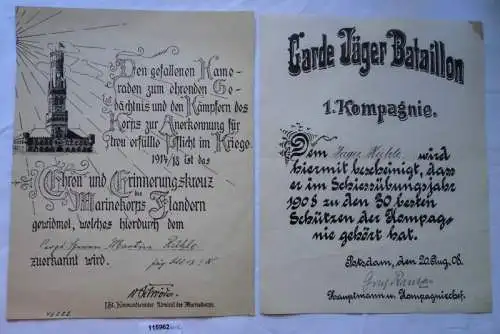 Den gefallenen Kame-
raden zum ehrenden Ge-
dächtnis und den Kämpfern des
Korps zur Anerkennung für
treu erfüllte Pflicht im Kriege
1914/18 ist das
Ehren und Erinnerungskreuz
des
Marinekorps Flandern
gewidmet, welches hierdurch dem
zuerkannt wird.
Garde Jäger Bataillon
1. Kompagnie.
Dem Jäger wird
hiermit bescheinigt, dass
er im Schiessübungsjahr
1908 zu den 30 besten
Schützen der Kompag-
nie gehört hat.
Potsdam, den 20 Aug. 08.
Hauptmann u. Kompagniechef.
115962